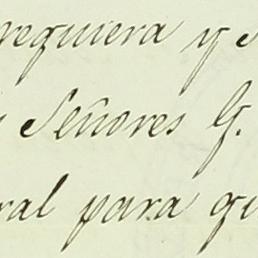 requiera y s
Señores G.
ral para qu